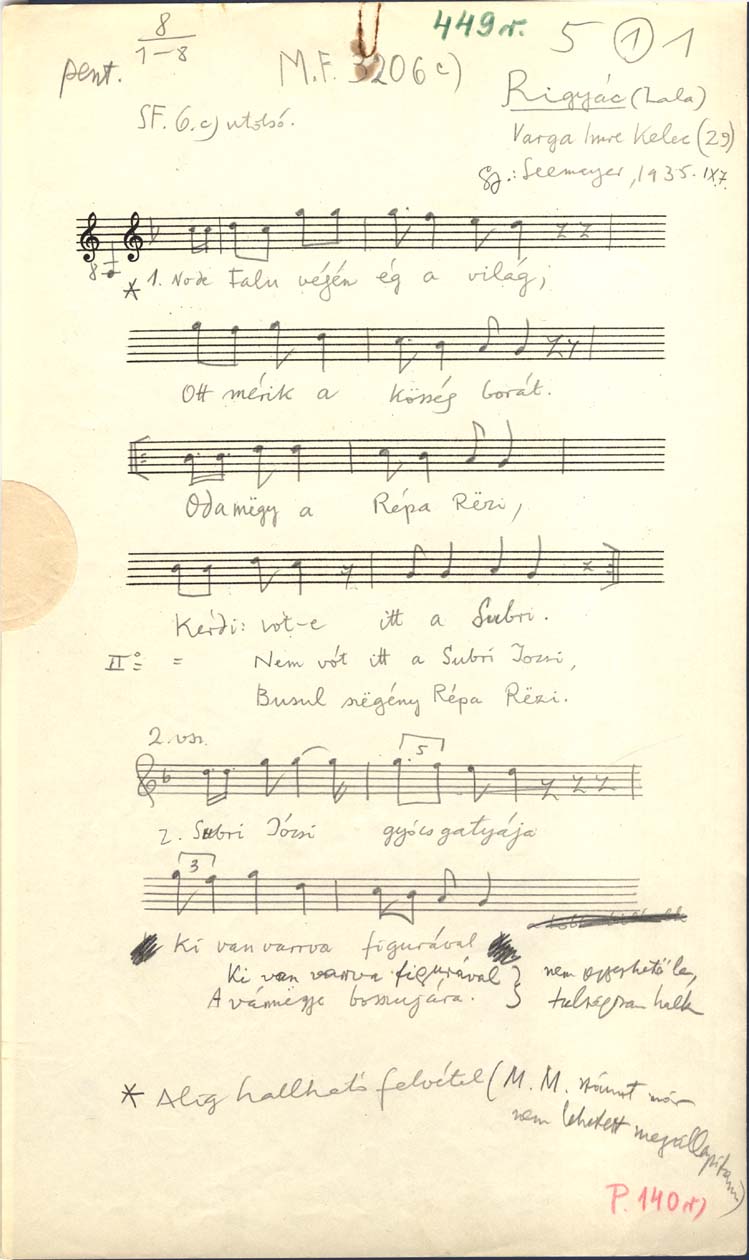 8
1–8
449r.
5 ① 1
pent.
M.F. 3206c)
Rigyác (Zala)
SF. 6.c) utolsó.
Varga Imre Kelec (29)
Gy.: Seemayer, 1935. IX 7.
8
* 1. No de Falu végén ég a világ;
Ott mérik a község borát.
Oda mëgy a Répa Rëzi,
Kérdi: vót-e itt a Subri.
II: = Nem vót itt a Subri Jozsi,
Busul szëgény Répa Rëzi.
2. vsz.
5
2. Subri Józsi gyócs gatyája
3
Ki van varrva figurával
Ki van varrva figurával } nem jegyezhető le,
A vármëgye bosszujára. } tulságosan halk
* Alig hallható felvétel (M. M. számot már
nem lehetett megállapítani)
P. 140r)